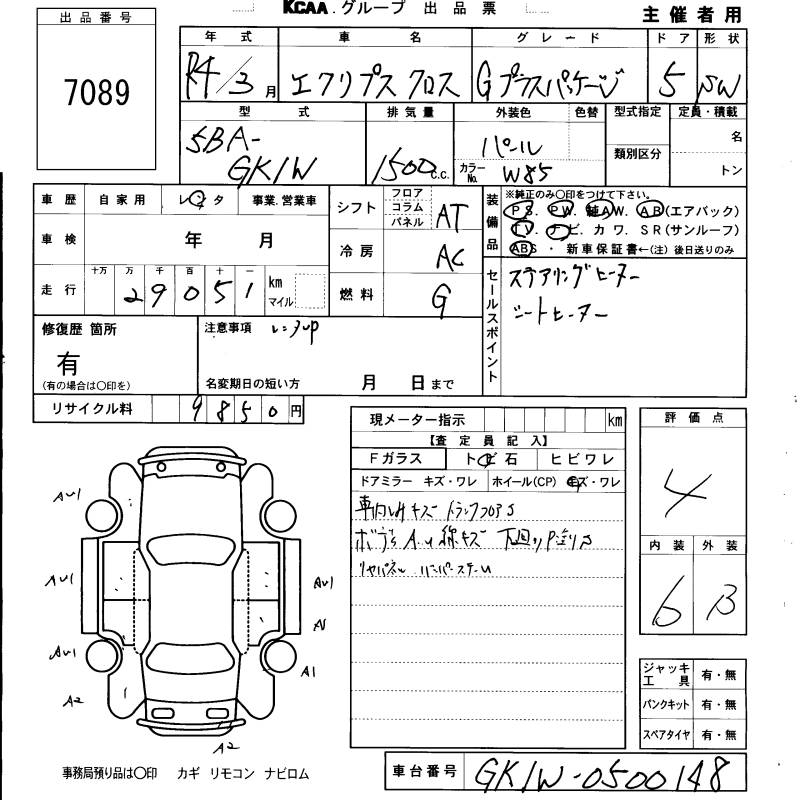 KCAA.グループ 出品票
主催者用
出品番号
7089
年式 車名 グレード ドア 形状
R4/3月 エクリプスクロス Gプラスパッケージ 5 SW
型式 排気量 外装色 色替 型式指定 定員・積載
5BA-GK1W 1500c.c. パール カラーNo. W85 類別区分 名 トン
車歴 自家用 レンタ 事業.営業車
車検 年 月
走行 十万 万 千 百 十 一
29051 km マイル
シフト フロア コラム パネル AT
冷房 AC
燃料 G
装備品 ※純正のみ〇印をつけて下さい。
PS. PW. 純AW. AB(エアバック)
TV. ナビ. カワ. SR(サンルーフ)
ABS ・ 新車保証書←(注)後日送りのみ
セールスポイント
ステアリングヒーター
シートヒーター
修復歴 箇所
有
(有の場合は〇印を)
注意事項 レンタup
名変期日の短い方 月 日まで
リサイクル料 9850円
現メーター指示 km
【査定員記入】
Fガラス トビ石 ヒビワレ
ドアミラー キズ・ワレ ホイール(CP) キズ・ワレ
車内しみキズ トランクフロアS
ボディAu線キズ 下回りP塗りS
リヤパネル
評価点
4
内装 外装
6 B
ジャッキ工具 有・無
パンクキット 有・無
スペアタイヤ 有・無
AU1
AU1
AU1
AU1
A1
A2
A2
事務局預り品は〇印 カギ リモコン ナビロム
車台番号 GK1W-0500148